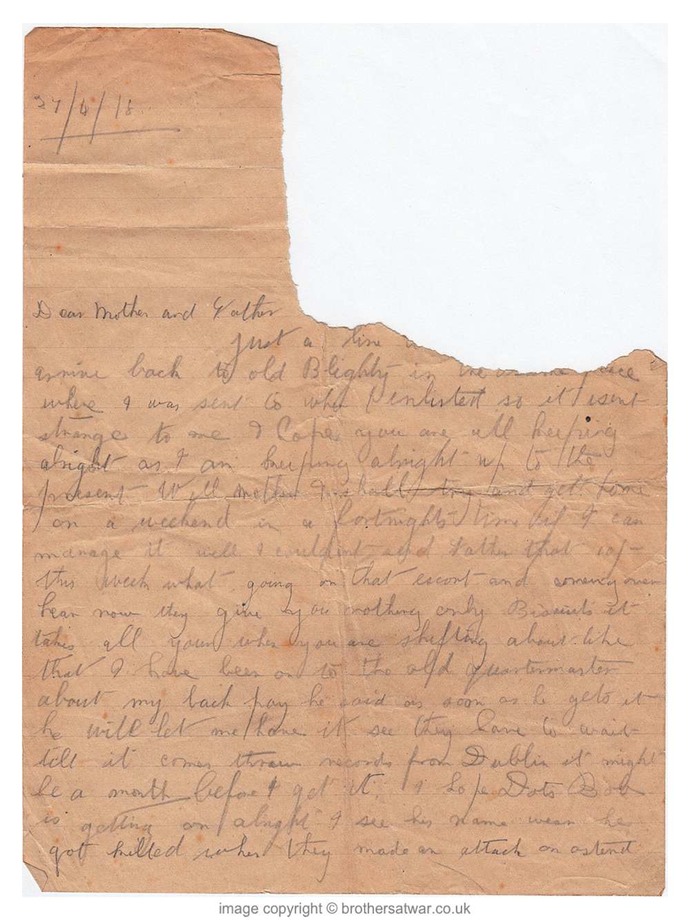 27/4/18
Dear Mother and Father
Just a line
arrive back to old Blighty in the same place
where I was sent to when I enlisted so it isent
strange to me I hope you are all keeping
alright as I am keeping alright up to the
present Well mother I shall try and get home
on a weekend in a fortnights time if I can
manage it well I couldint send Father that 10/-
this week what going on that escort and coming over
hear now they give you nothing only Biscuits it
takes all yours when you are shifting about like
that I have been on to the old quartermaster
about my back pay he said as soon as he gets it
he will let me have it see they have to wait
till it comes threw records from Dublin it might
be a month before I get it I hope Dots Bob
is getting on alright I see his name wear he
got killed when they made an attack on ostend
image copyright © brothersatwar.co.uk